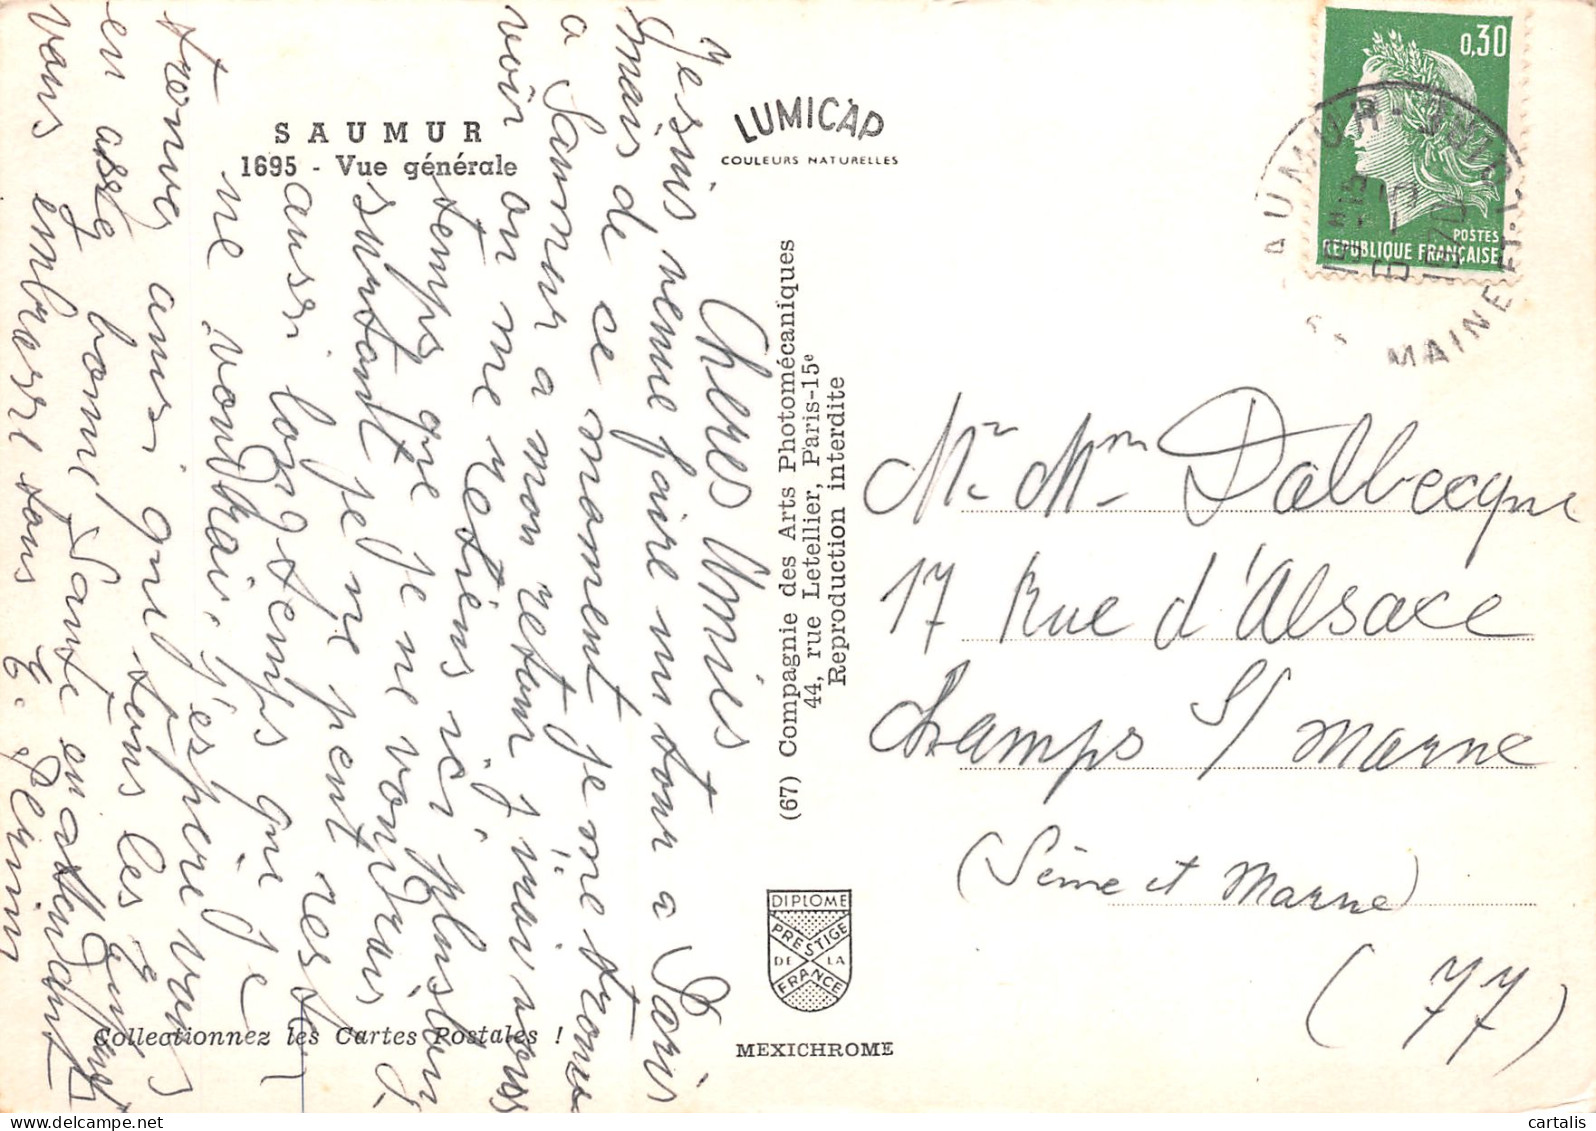 SAUMUR
1695 - Vue générale
LUMICAP
COULEURS NATURELLES
0,30
POSTES
REPUBLIQUE FRANÇAISE
MAINE-ET-L
1970
Cheres Amies
Je suis venue faire un tour a Paris
mais de ce moment je me trouve
a Saumur a mon retour j'irai vous
voir on me retiens ici plus
temps que je ne voudrais
surtant je ne peut rest
aussi longtemps que je
ne voudrai, j'espère vous
trouver ausi que tous les
en assez bonne Sante en attendant
vous embrasse tous
(67) Compagnie des Arts Photomécaniques
44, rue Letellier, Paris-15e
Reproduction interdite
Mr Mm Dalbecque
17 Rue d'Alsace
Champs s/ Marne
(Seine et Marne)
(77)
DIPLOME
PRESTIGE
DE LA
FRANCE
Collectionnez les Cartes Postales !
MEXICHROME
cartalis
delcampe.net